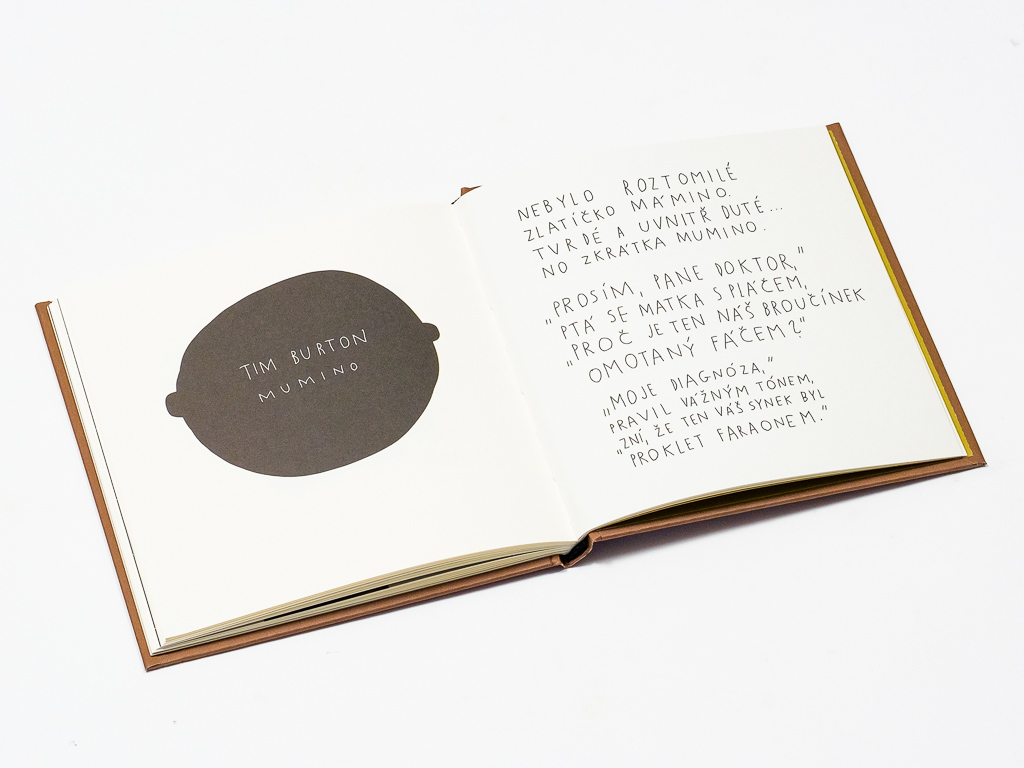 TIM BURTON
MUMINO
NEBYLO ROZTOMILÉ
ZLATÍČKO MÁMINO.
TVRDÉ A UVNITŘ DUTÉ...
NO ZKRÁTKA MUMINO.
"PROSÍM, PANE DOKTOR,"
PTÁ SE MATKA S PLÁČEM,
"PROČ JE TEN NÁŠ BROUČÍNEK
OMOTANÝ FÁČEM?"
"MOJE DIAGNÓZA,"
PRAVIL VÁŽNÝM TÓNEM,
"ZNÍ, ŽE TEN VÁŠ SYNEK BYL
"PROKLET FARAONEM."